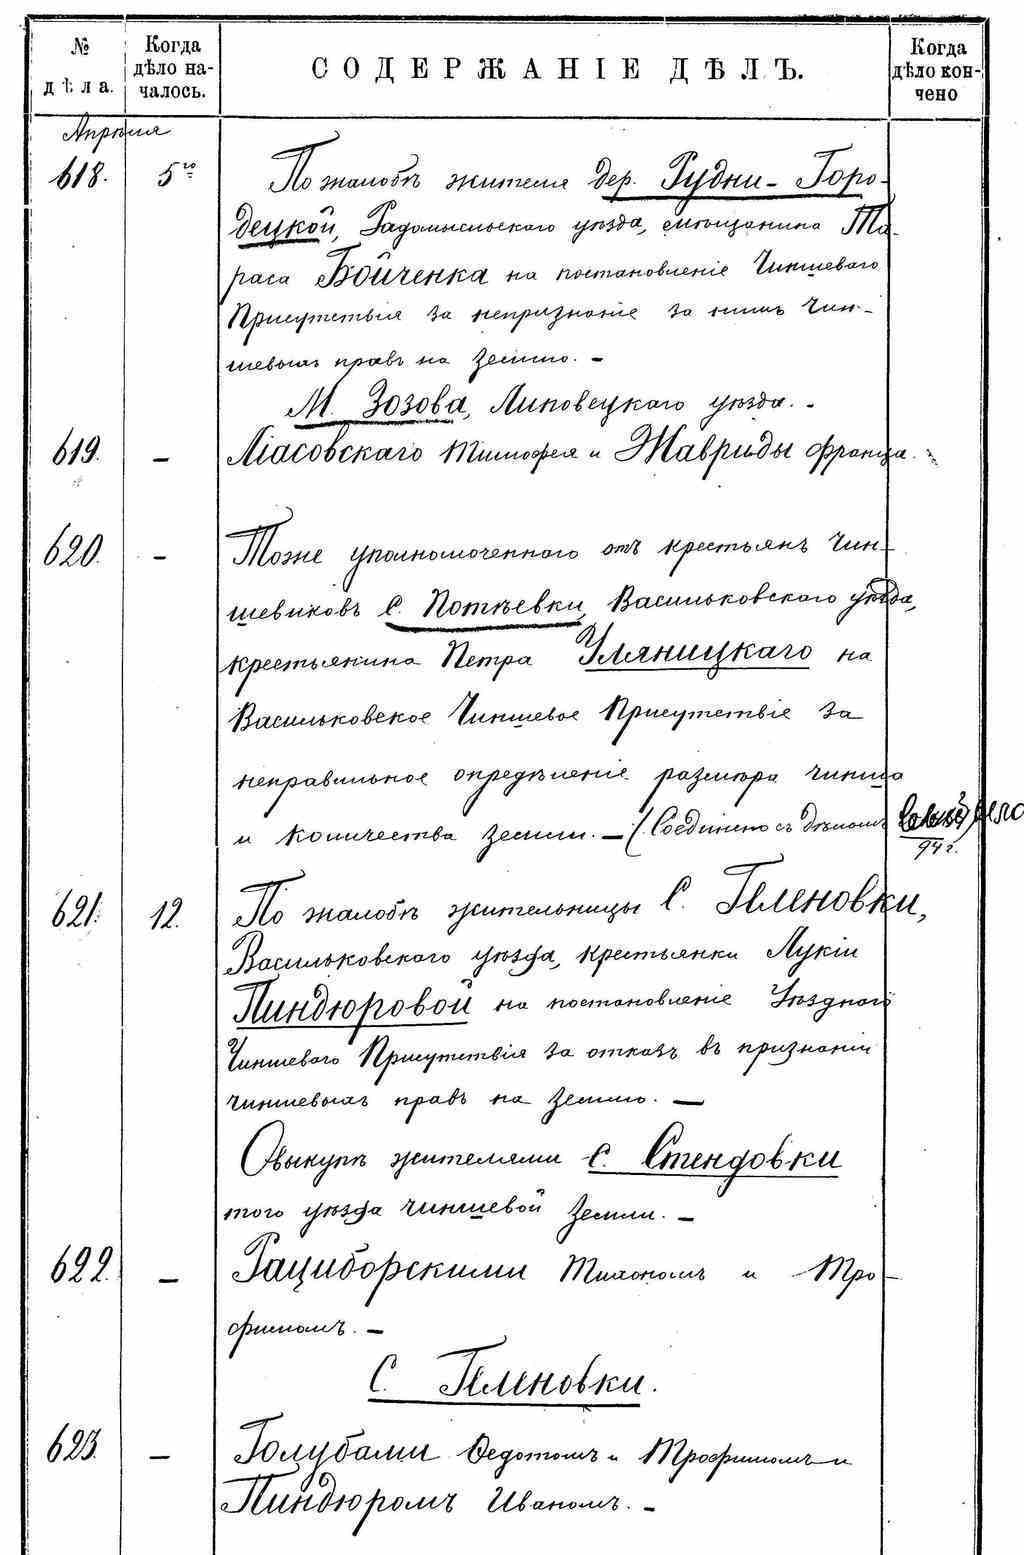 № дѣла.
Когда дѣло началось.
СОДЕРЖАНІЕ ДѢЛЪ.
Когда дѣло кончено
Апрѣля
618. 5го По жалобѣ жителя дер. Рудни-Горо-
децкой, Радомысльскаго уѣзда, мѣщанина Та-
раса Бойченка на постановленіе Чиншеваго
Присутствія за непризнаніе за нимъ Чин-
шевыхъ правъ на землю. –
М. Зозова, Липовецкаго уѣзда. –
619. – Лясовскаго Тимофея и Жавриды Франца.
620. – Тоже уполномоченнаго отъ крестьянъ Чин-
шевиковъ с. Потіевки, Васильковскаго уѣзда,
крестьянина Петра Уляницкаго на
Васильковское Чиншевое Присутствіе за
неправильное опредѣленіе размѣра чинша
и количества земли. – (Соединено съ дѣломъ
94 г.
621. 12. По жалобѣ жительницы с.
Васильковскаго уѣзда, крестьянки Лукіи
Пиндюровой на постановленіе Уѣзднаго
Чиншеваго Присутствія за отказъ въ признаніи
чиншевыхъ правъ на землю. –
О выкупѣ жителями с. Стендовки
того уѣзда чиншевой земли. –
622. – Рациборскими Тихономъ и Тро-
фимомъ. –
с.
623. – Голубами Федотомъ и Трофимомъ и
Пиндюромъ Иваномъ. –